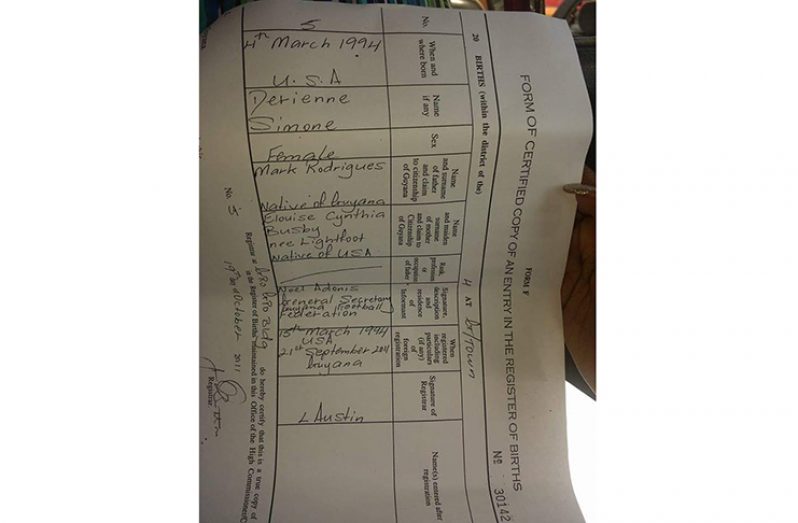 FORM F
FORM OF CERTIFIED COPY OF AN ENTRY IN THE REGISTER OF BIRTHS
Nº 30142
20 BIRTHS (within the district of the)
4 AT G/TOWN
No.
When and
where born
Name
if any
Sex
Name
and surname
of father
and claim
to citizenship
of Guyana
Name
and maiden
surname
of mother
and claim to
Citizenship
of Guyana
Rank
profession
or
occupation
of father
Signature,
description
and
residence
of
Informant
When
registered
including
particulars
(if any)
of
foreign
registration
Signature of
Registrar
Name(s) entered after
registration
5
4th March 1994
U.S.A
Derienne
Simone
Female
Mark Rodrigues
Native of Guyana
Elouise Cynthia
Busby
nee Lightfoot
Native of USA
Noel Adonis
General Secretary
Guyana Football
Federation
15th March 1994
USA
21st September 2011
Guyana
L Austin
No. 5
Registrar at GRO GPO Bldg do hereby certify that this is a true copy of
in the Register of Births maintained in this Office of the High Commissioner/C
19th day October 2011
Registrar